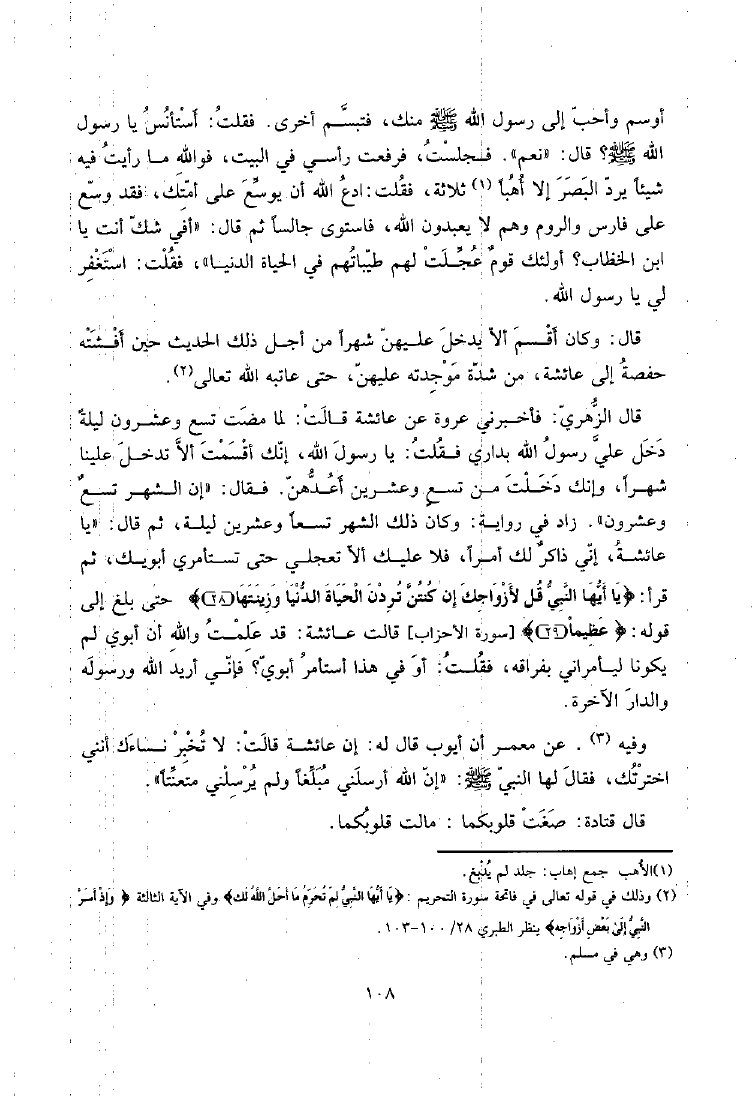 أوسم وأحبّ إلى رسول الله ﷺ منك، فتبسَّم أخرى. فقلتُ: أَسْتأنُسُ يا رسول
الله ﷺ؟ قال: «نعم». فـجلسْتُ، فرفعت رأسي في البيت، فوالله مـا رأيتُ فيه
شيئاً يردّ البَصَرَ إلا أُهُباً (١) ثلاثة، فقُلت: ادعُ الله أن يوسِّعَ على أمّتِك، فقد وسّع
على فارس والروم وهم لا يعبدون الله، فاستوى جالساً ثم قال: «أفي شكّ أنت يا
ابن الخطاب؟ أولئك قومٌ عُجِّـلَتْ لهم طيّباتُهم في الحياة الدنيـا»، فقُلْت: اسْتَغْفِر
لي يا رسول الله.
قال: وكان أَقْسمَ ألاّ يدخلَ علـيهنّ شهراً من أجـل ذلك الحديث حين أَفْشَتْه
حفصةُ إلى عائشة، من شدّة مَوْجِدته عليهنّ، حتى عاتبه الله تعالى(٢).
قال الزُّهريّ: فأخـبرني عروة عن عائشة قـالَتْ: لما مضَت تسع وعشـرون ليلةً
دَخَل عليَّ رسولُ الله بداري فـقُلتُ: يا رسولَ الله، إنّك أقْسَمْتَ ألاَّ تدخـلَ علينا
شهـراً، وإنك دَخَـلْتَ مـن تسعٍ وعشرين أَعُـدُّهنّ. فـقال: «إن الـشهـر تسـعٌ
وعشرون». زاد في روايـة: وكان ذلك الشهر تسـعاً وعشرين ليلـة، ثم قال: «يا
عائشـةُ، إنّي ذاكرٌ لك أمـراً، فلا عليـك ألاّ تعجلـي حتى تسـتأمري أبويـك، ثم
قرأ: ﴿يَا أَيُّهَا النَّبِيُّ قُل لأَزْوَاجِكَ إِن كُنتُنَّ تُرِدْنَ الْحَيَاةَ الدُّنْيَا وَزِينَتَهَا(٢٨)﴾ حتى بلغ إلى
قوله: ﴿ عَظِيماً(٢٩)﴾ [سورة الأحزاب] قالت عـائشة: قد عَلِمْـتُ واللهِ أن أبوي لم
يكونا ليـأمراني بفراقه، فقُلـتُ: أوَ في هذا أستأمرُ أبويّ؟ فإنّـي أريد الله ورسولَه
والدارَ الآخرة.
وفيه (٣) . عن معمـر أن أيوب قال له: إن عائشـة قالتْ: لا تُخْبِرْ نـساءَك أنني
اخترْتُك، فقالَ لها النبيّ ﷺ: «إنّ الله أرسلَني مُبَلِّغاً ولم يُرْسِلْني متعنِّتاً».
قال قتادة: صَغَتْ قلوبكما : مالت قلوبُكما.
(١)الأُهب جمع إهاب: جلد لم يُدْبغ.
(٢) وذلك في قوله تعالى في فاتحة سورة التحريم :﴿يَا أَيُّهَا النَّبِيُّ لِمَ تُحَرِّمُ مَا أَحَلَّ اللَّهُ لَك﴾ وفي الآية الثالثة ﴿ وَإِذْ أَسَرَّ
النَّبِيُّ إِلَىٰ بَعْضِ أَزْوَاجِهِ﴾ ينظر الطبري ٢٨/ ١٠٠-١٠٣.
(٣) وهي في مسلم.
١٠٨